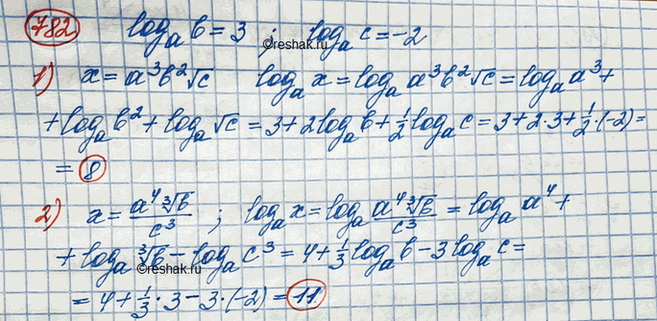 782 log_a b = 3 ; log_a c = -2
©reshak.ru
1) x = a³b²√c log_a x = log_a a³b²√c = log_a a³ +
+ log_a b² + log_a √c = 3 + 2log_a b + 1/2 log_a c = 3 + 2·3 + 1/2·(-2) =
= 8
2) x = a⁴∛b/c³ ; log_a x = log_a a⁴∛b/c³ = log_a a⁴ +
+ log_a ∛b - log_a c³ = 4 + 1/3 log_a b - 3 log_a c =
©reshak.ru
= 4 + 1/3·3 - 3·(-2) = 11